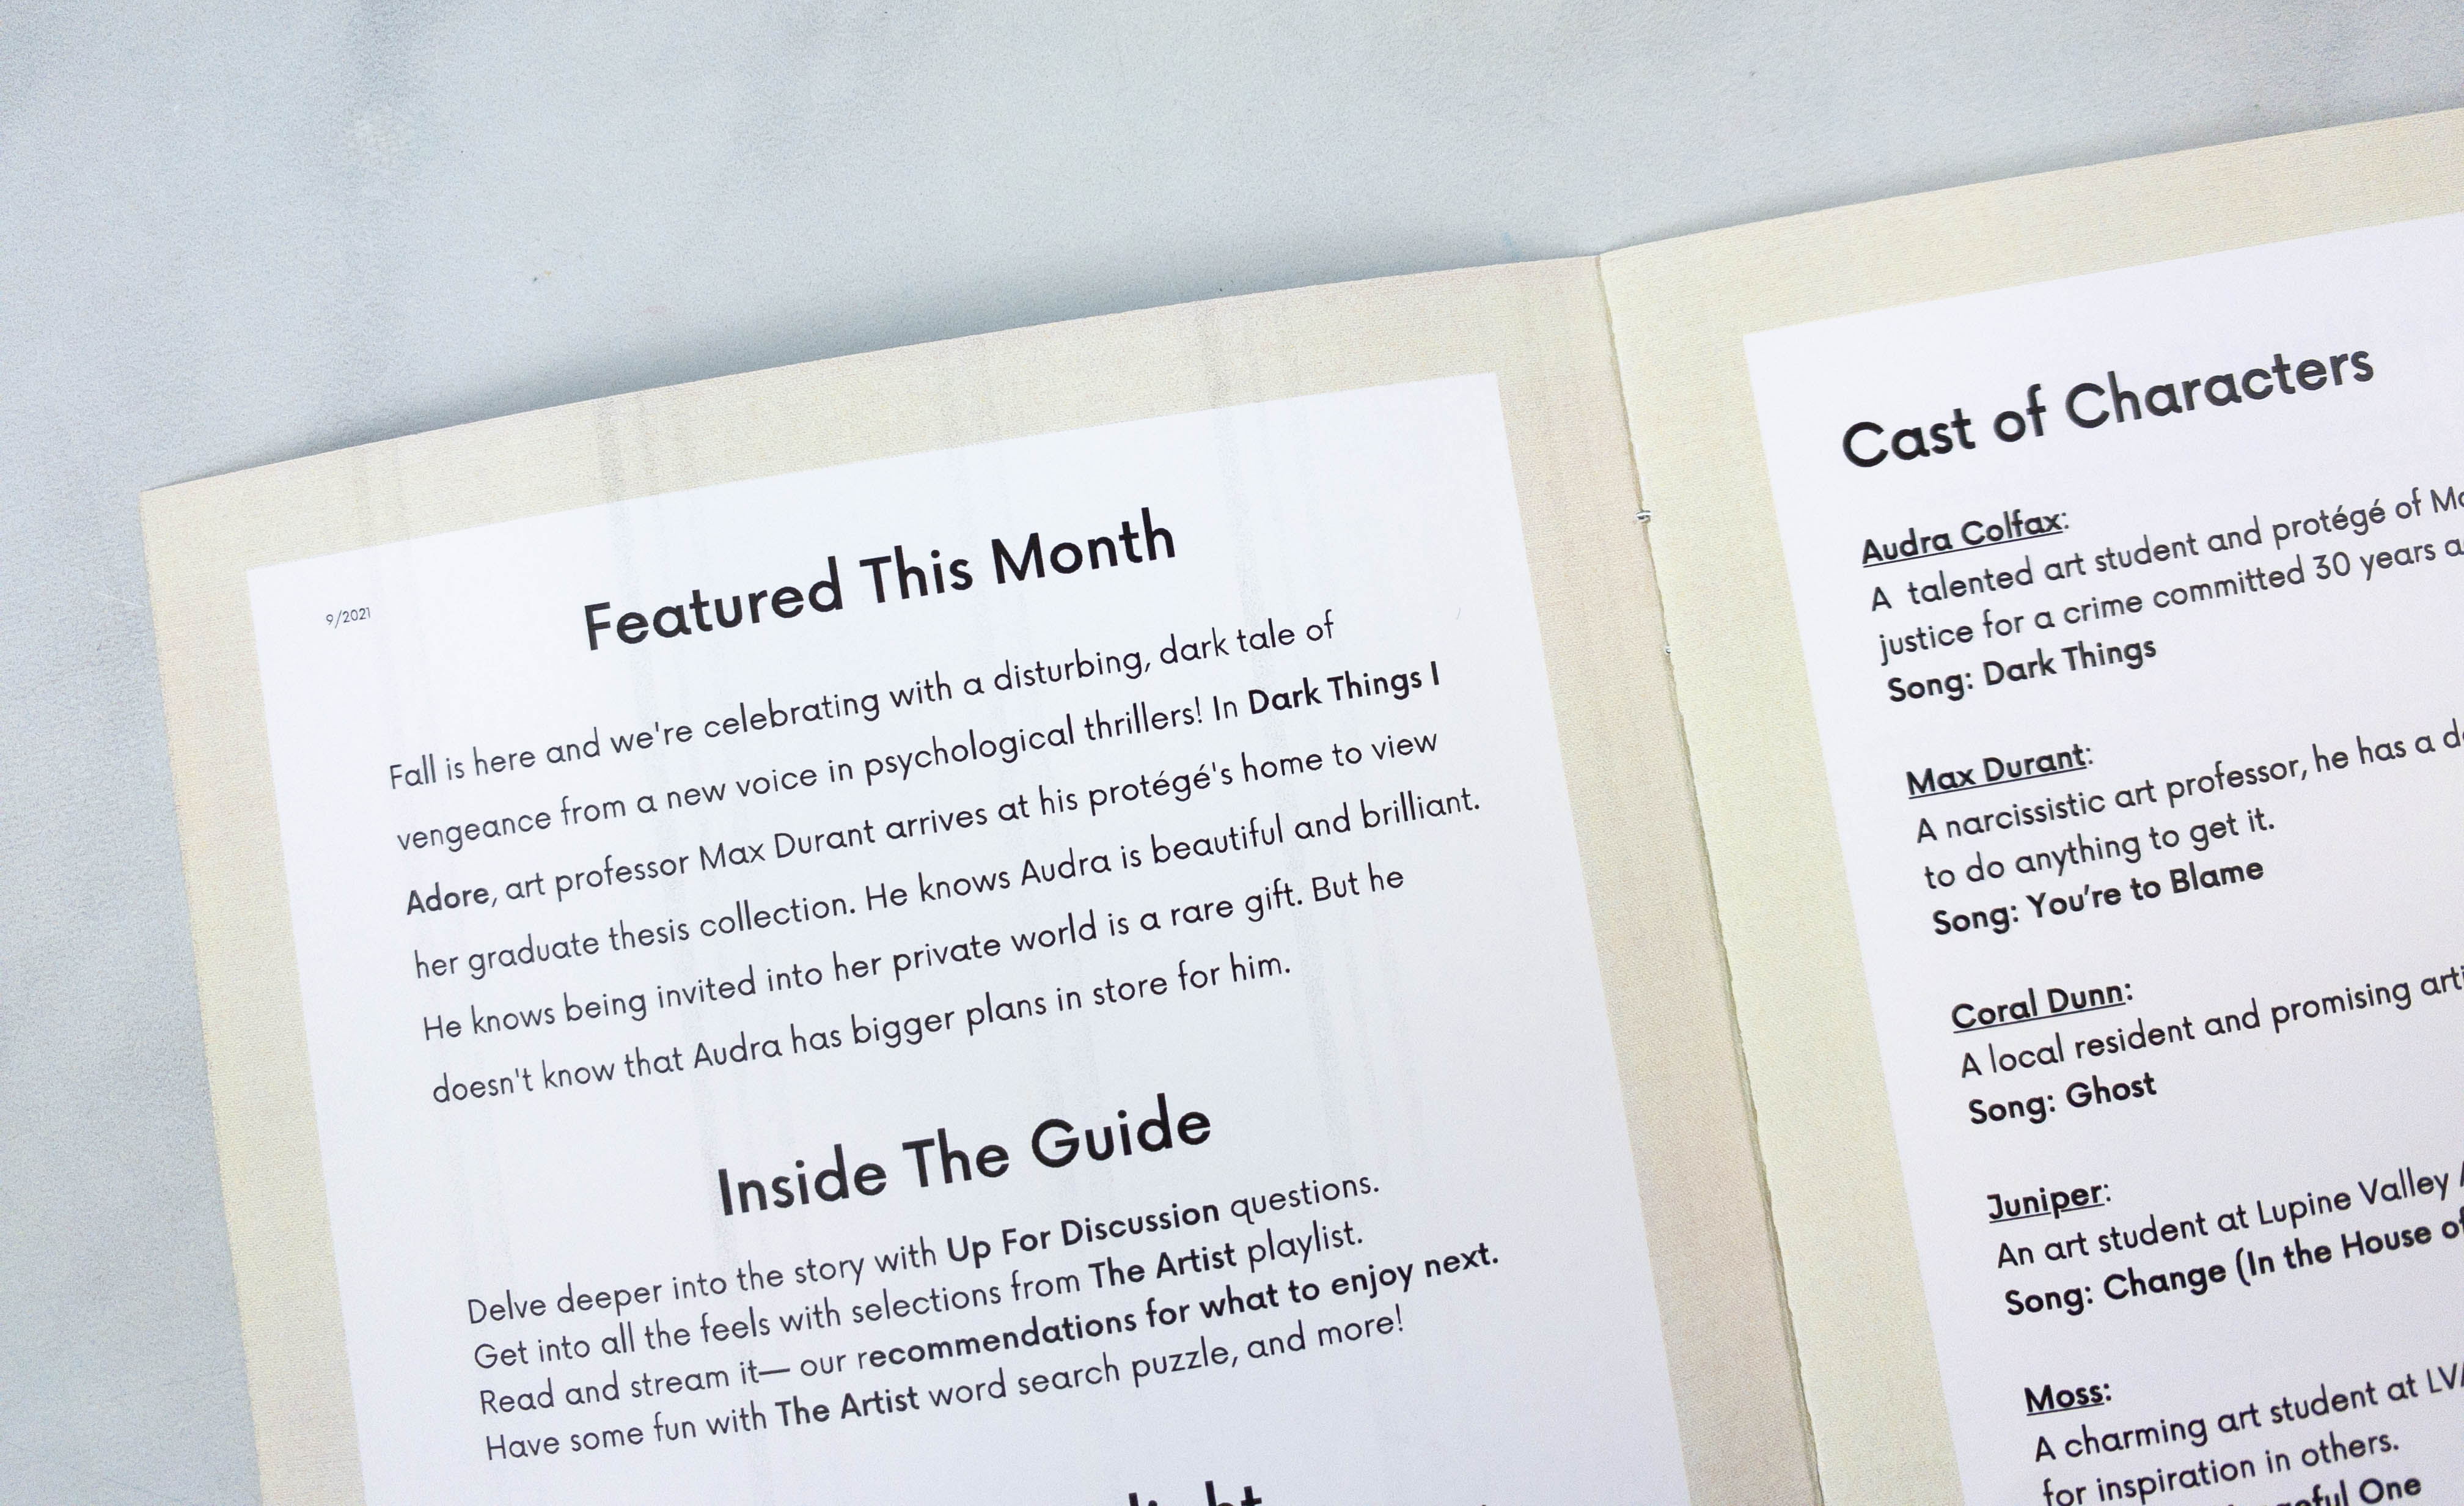 9/2021
Featured This Month
Fall is here and we're celebrating with a disturbing, dark tale of
vengeance from a new voice in psychological thrillers! In Dark Things I
Adore, art professor Max Durant arrives at his protégé's home to view
her graduate thesis collection. He knows Audra is beautiful and brilliant.
He knows being invited into her private world is a rare gift. But he
doesn't know that Audra has bigger plans in store for him.
Inside The Guide
Delve deeper into the story with Up For Discussion questions.
Get into all the feels with selections from The Artist playlist.
Read and stream it— our recommendations for what to enjoy next.
Have some fun with The Artist word search puzzle, and more!
Cast of Characters
Audra Colfax:
A talented art student and protégé of
justice for a crime committed 30 years
Song: Dark Things
Max Durant:
A narcissistic art professor, he has a
to do anything to get it.
Song: You're to Blame
Coral Dunn:
A local resident and promising
Song: Ghost
Juniper:
An art student at Lupine Valley
Song: Change (In the House of
Moss:
A charming art student at
for inspiration in others.
One